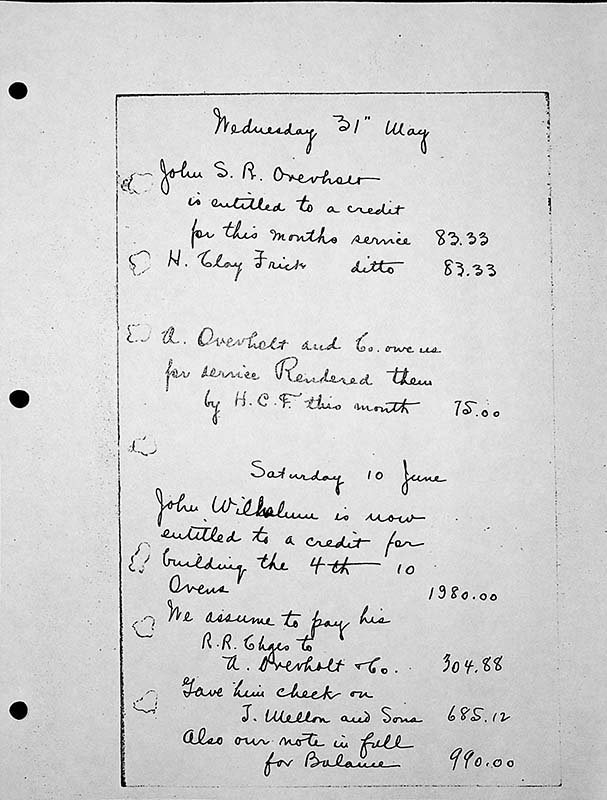 Wednesday 31" May
John S. R. Overholt
is entitled to a credit
for this months service 83.33
H. Clay Frick ditto 83.33
A. Overholt and Co. owe us
for service Rendered them
by H.C.F. this month 75.00
Saturday 10 June
John Wilhelm is now
entitled to a credit for
building the 4th 10
Ovens 1980.00
We assume to pay his
R.R. Chges to
A. Overholt & Co. 304.88
Gave him check on
T. Mellon and Sons 685.12
Also our note in full
for Balance 990.00